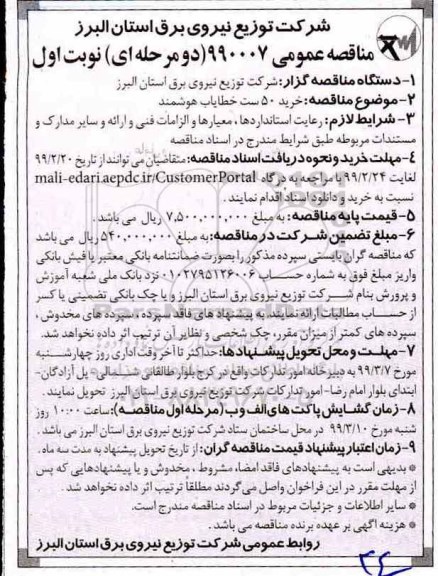 شرکت توزیع نیروی برق استان البرز
مناقصه عمومی ۹۹۰۰۰۷(دو مرحله ای) نوبت اول
۱- دستگاه مناقصه گزار: شرکت توزیع نیروی برق استان البرز
۲- موضوع مناقصه: خرید ۵۰ ست خطایاب هوشمند
۳- شرایط لازم: رعایت استانداردها، معیارها و الزامات فنی و ارائه و سایر مدارک و
مستندات مربوطه طبق شرایط مندرج در اسناد مناقصه
۴- مهلت خرید و نحوه دریافت اسناد مناقصه: متقاضیان می توانند از تاریخ ۹۹/۲/۲۰
لغایت ۹۹/۲/۲۴ با مراجعه به درگاه mali-edari.aepdc.ir/CustomerPortal
نسبت به خرید و دانلود اسناد اقدام نمایند.
۵- قیمت پایه مناقصه: به مبلغ ۷,۵۰۰,۰۰۰,۰۰۰ ریال می باشد.
۶- مبلغ تضمین شرکت در مناقصه: به مبلغ ۵۴۰,۰۰۰,۰۰۰ ریال می باشد
که مناقصه گران بایستی سپرده مذکور را بصورت ضمانتنامه بانکی معتبر یا فیش بانکی
واریز مبلغ فوق به شماره حساب ۰۱۰۲۷۹۵۱۲۶۰۰۶ نزد بانک ملی شعبه آموزش
و پرورش بنام شرکت توزیع نیروی برق استان البرز و یا چک بانکی تضمینی یا کسر
از حساب مطالبات ارائه نمایند. به پیشنهاد های فاقد سپرده، سپرده های مخدوش،
سپرده های کمتر از میزان مقرر، چک شخصی و نظایر آن ترتیب اثر داده نخواهد شد.
۷- مهلت و محل تحویل پیشنهادها: حداکثر تا آخر وقت اداری روز چهارشنبه
مورخ ۹۹/۳/۷ به دبیرخانه امور تدارکات واقع در کرج بلوار طالقانی شمالی- پل آزادگان-
ابتدای بلوار امام رضا- امور تدارکات شرکت توزیع نیروی برق استان البرز تحویل نمایند.
۸- زمان گشایش پاکت های الف و ب (مرحله اول مناقصه): ساعت ۱۰:۰۰ روز
شنبه مورخ ۹۹/۳/۱۰ در محل ساختمان ستاد شرکت توزیع نیروی برق استان البرز می باشد.
۹- زمان اعتبار پیشنهاد قیمت مناقصه گران: از تاریخ تحویل پیشنهاد به مدت سه ماه.
* بدیهی است به پیشنهادهای فاقد امضاء، مشروط، مخدوش و یا پیشنهادهایی که پس
از مهلت مقرر در این فراخوان واصل می گردند مطلقاً ترتیب اثر داده نخواهد شد.
* سایر اطلاعات و جزئیات مربوط در اسناد مناقصه مندرج است.
* هزینه آگهی بر عهده برنده مناقصه می باشد.
روابط عمومی شرکت توزیع نیروی برق استان البرز